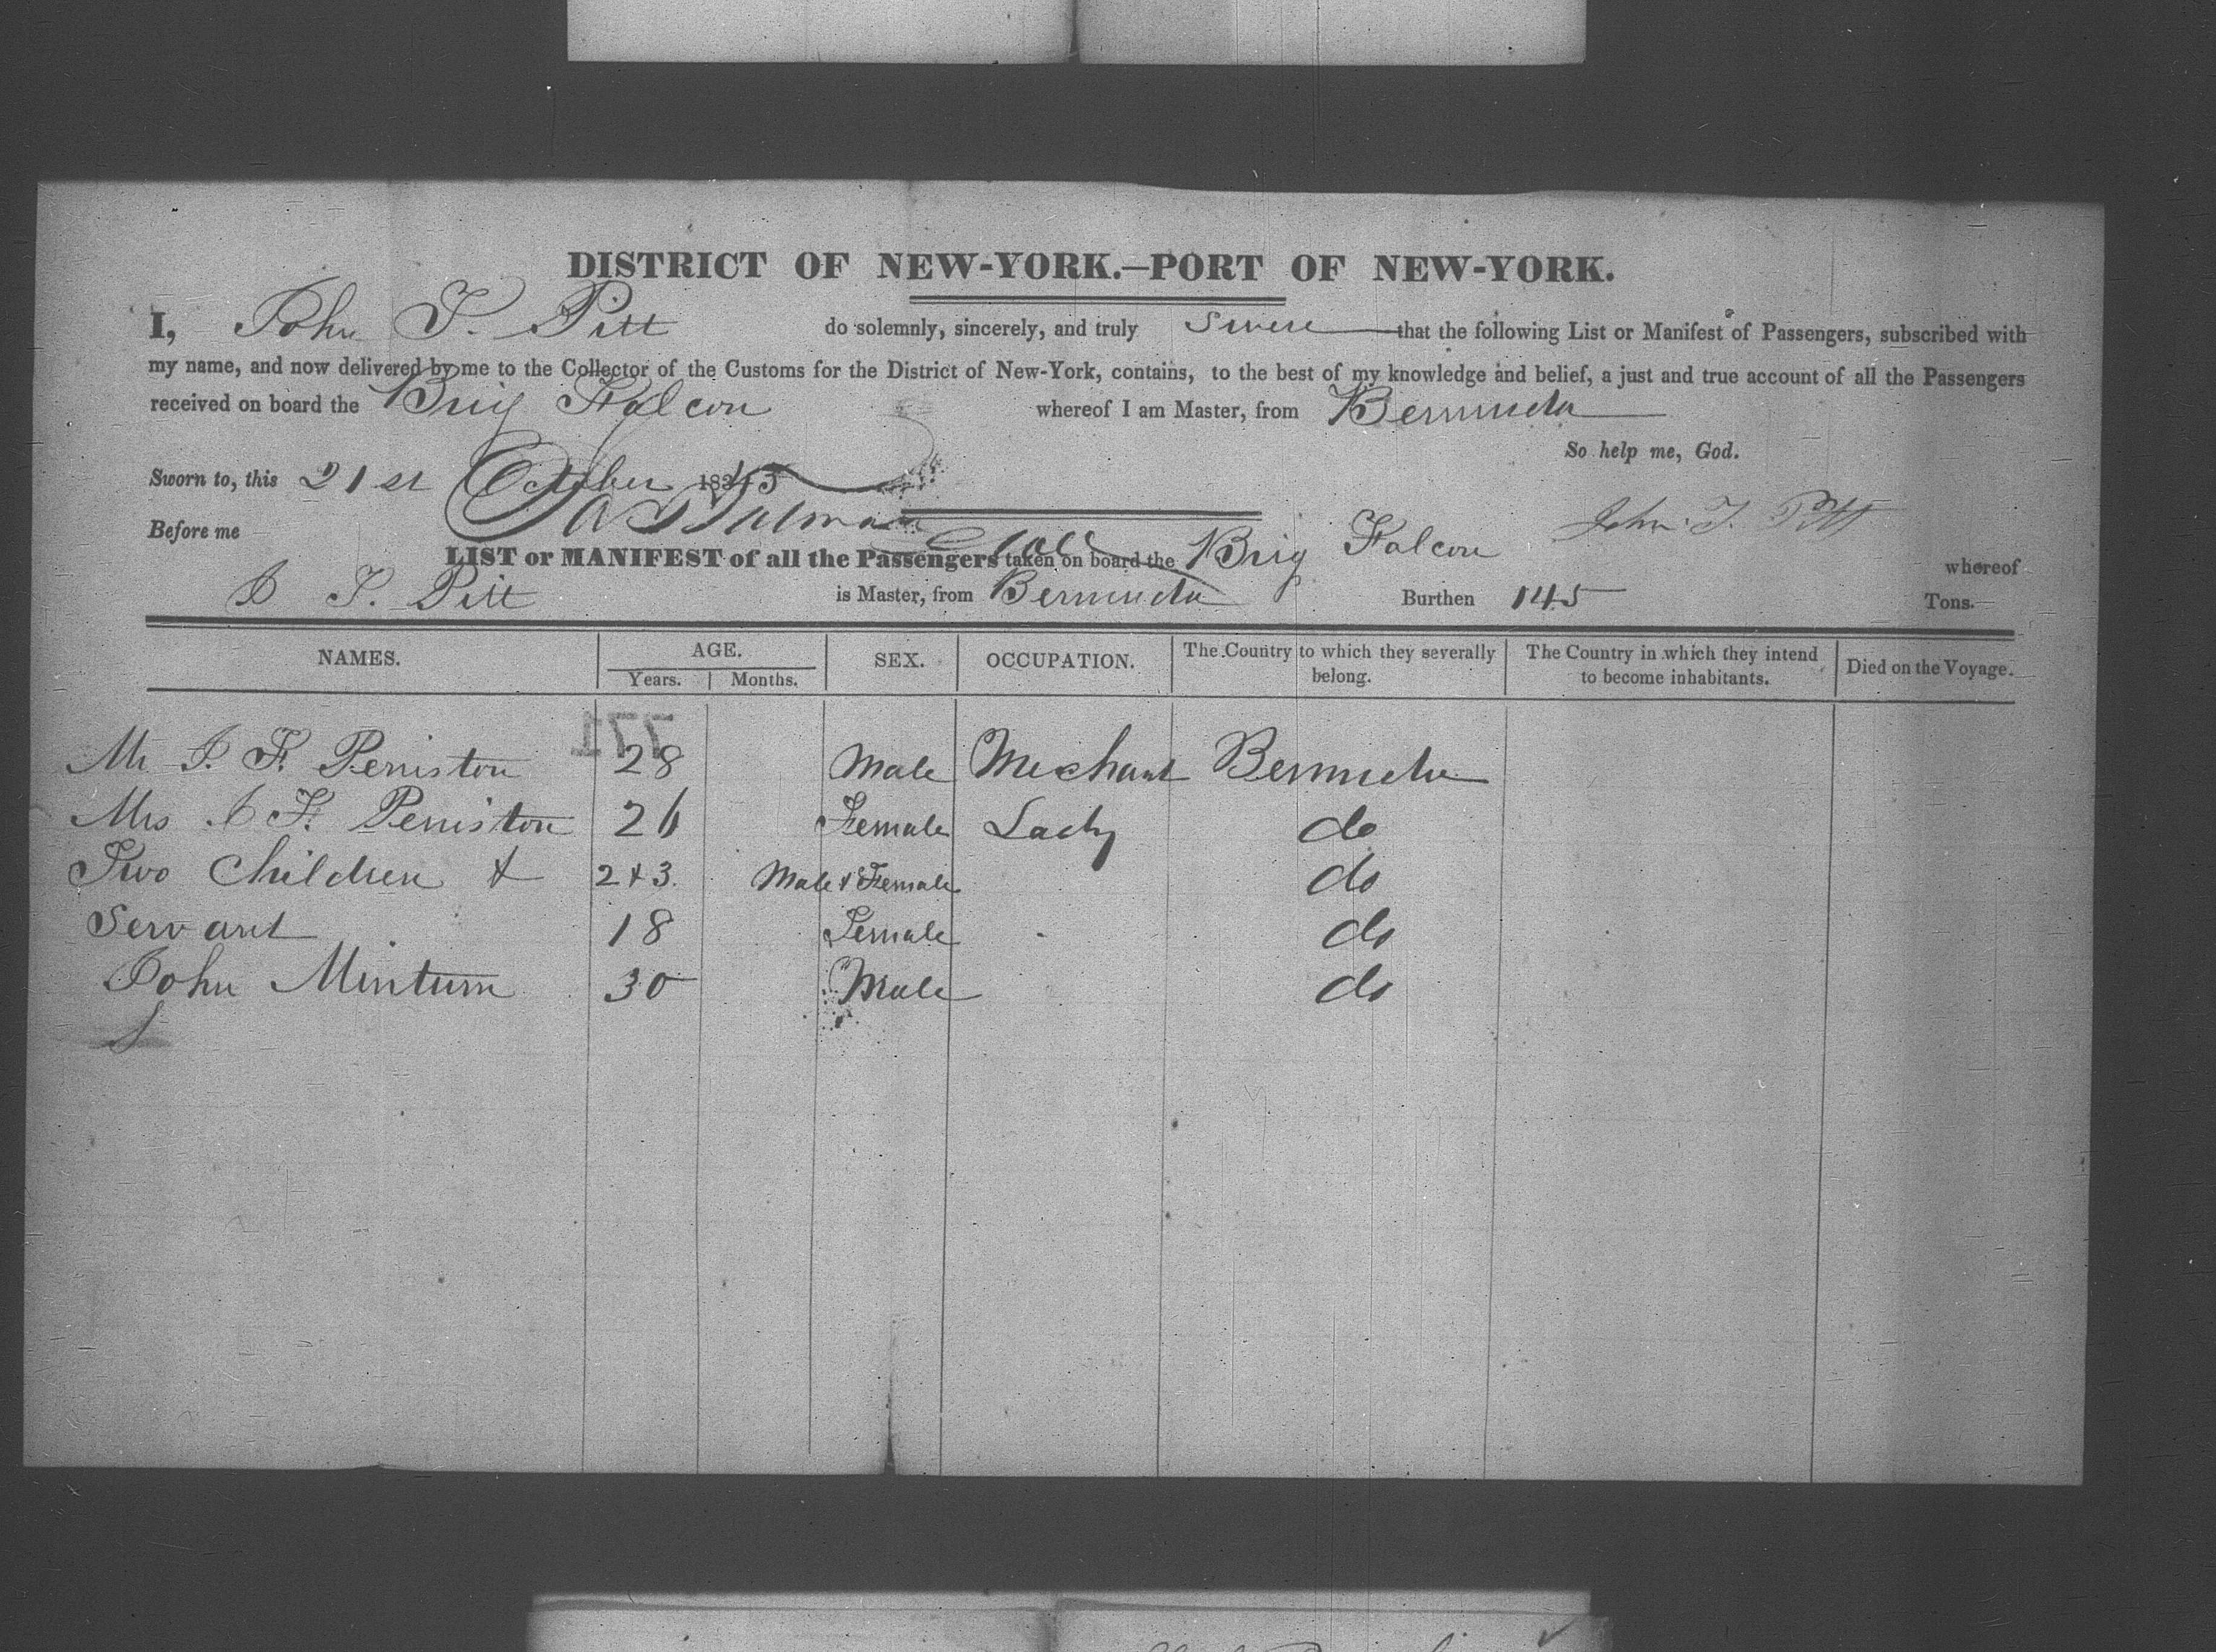 DISTRICT OF NEW-YORK.—PORT OF NEW-YORK.
I, John T. Pitt do solemnly, sincerely, and truly swere that the following List or Manifest of Passengers, subscribed with
my name, and now delivered by me to the Collector of the Customs for the District of New-York, contains, to the best of my knowledge and belief, a just and true account of all the Passengers
received on board the Brig Falcon whereof I am Master, from Bermuda
So help me, God.
Sworn to, this 21st October 1845
Before me John T. Pitt
LIST or MANIFEST of all the Passengers taken on board the Brig Falcon whereof
J T. Pitt is Master, from Bermuda Burthen 145 Tons.
NAMES. AGE. SEX. OCCUPATION. The Country to which they severally belong. The Country in which they intend to become inhabitants. Died on the Voyage.
Years. Months.
177
Mr J. F. Peniston 28 Male Merchant Bermuda
Mrs J F. Peniston 26 Female Lady do
Two Children & 2 & 3. Male & Female do
Servant 18 Female do
John Minturn 30 Male do